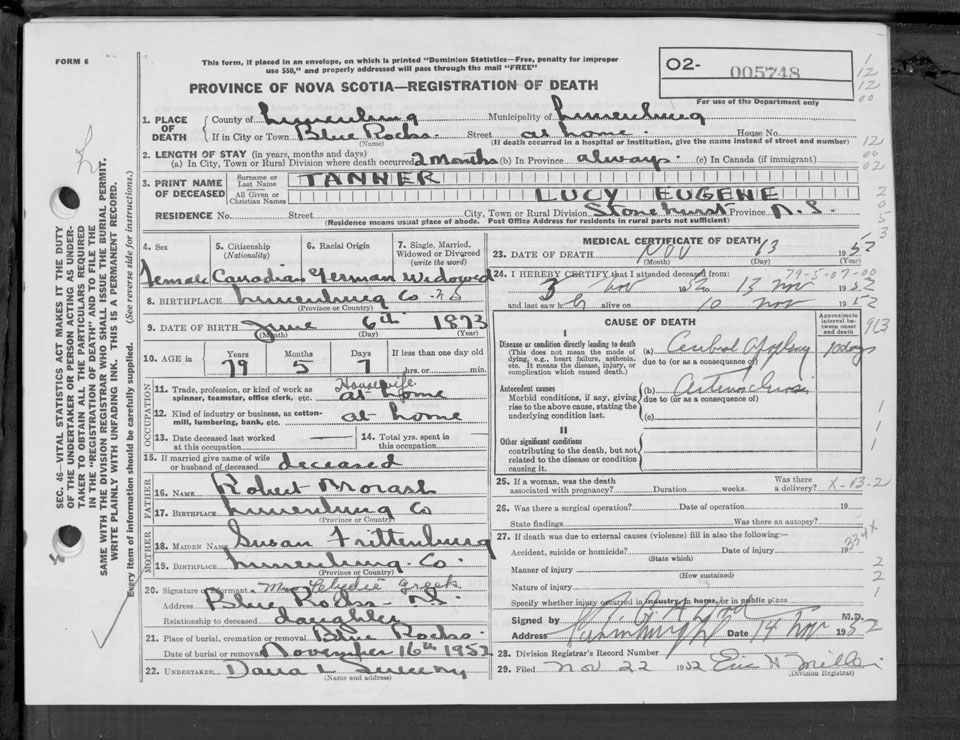 FORM 6
This form, if placed in an envelope, on which is printed "Dominion Statistics—Free, penalty for improper
use $50," and properly addressed will pass through the mail "FREE"
02- 005748
For use of the Department only
PROVINCE OF NOVA SCOTIA—REGISTRATION OF DEATH
1. PLACE OF DEATH
County of Lunenburg Municipality of Lunenburg
If in City or Town Blue Rocks. Street at home. House No.
(Name) (If death occurred in a hospital or institution, give the name instead of street and number)
2. LENGTH OF STAY (in years, months and days)
(a) In City, Town or Rural Division where death occurred 2 Months (b) In Province always. (c) In Canada (if immigrant)
3. PRINT NAME OF DECEASED
Surname or Last Name TANNER
All Given or Christian Names LUCY EUGENE
RESIDENCE No. Street City, Town or Rural Division Stonehurst Province N.S.
(Residence means usual place of abode. Post Office Address for residents in rural parts not sufficient)
4. Sex 5. Citizenship (Nationality) 6. Racial Origin 7. Single, Married, Widowed or Divorced (write the word)
Female Canadian German Widowed
8. BIRTHPLACE Lunenburg Co. N.S
(Province or Country)
9. DATE OF BIRTH June 6th 1873
(Month) (Day) (Year)
10. AGE in Years Months Days If less than one day old
79 5 7 hrs. or min.
OCCUPATION
11. Trade, profession, or kind of work as spinner, teamster, office clerk, etc. Housewife at home
12. Kind of industry or business, as cotton-mill, lumbering, bank, etc. at home
13. Date deceased last worked at this occupation 14. Total yrs. spent in this occupation
15. If married give name of wife or husband of deceased deceased
FATHER
16. NAME Robert Morash
17. BIRTHPLACE Lunenburg Co
(Province or Country)
MOTHER
18. MAIDEN NAME Susan Frittenburg
19. BIRTHPLACE Lunenburg. Co.
(Province or Country)
20. Signature of informant Mrs Clydie Greek
Address Blue Rocks N.S.
Relationship to deceased daughter
21. Place of burial, cremation or removal Blue Rocks.
Date of burial or removal November 16th 1952
22. UNDERTAKER Dana L Sweeny
(Name and address)
MEDICAL CERTIFICATE OF DEATH
23. DATE OF DEATH Nov 13 1952
(Month) (Day) (Year)
79-5-07-00
24. I HEREBY CERTIFY that I attended deceased from:
3 Nov 1952 to 13 Nov 1952
and last saw h alive on 10 Nov 1952
CAUSE OF DEATH
Approximate interval between onset and death
I
Disease or condition directly leading to death
(This does not mean the mode of dying, e.g., heart failure, asthenia, etc. It means the disease, injury, or complication which caused death.)
(a) Cerebral Apoplexy 10 days
due to (or as a consequence of)
Antecedent causes
Morbid conditions, if any, giving rise to the above cause, stating the underlying condition last.
(b) Arteriosclerosis
due to (or as a consequence of)
(c)
II
Other significant conditions contributing to the death, but not related to the disease or condition causing it.
25. If a woman, was the death associated with pregnancy? Duration weeks. Was there a delivery? X-13-2
26. Was there a surgical operation? Date of operation 19
State findings Was there an autopsy?
27. If death was due to external causes (violence) fill in also the following:—
Accident, suicide or homicide? Date of injury 19
(State which)
Manner of injury
(How sustained)
Nature of injury
Specify whether injury occurred in industry, in home, or in public place
Signed by M.D.
Address Date 14 Nov 1952
28. Division Registrar's Record Number
29. Filed Nov 22 1952 Eric H Miller
(Division Registrar)
SEC. 46—VITAL STATISTICS ACT MAKES IT THE DUTY
OF THE UNDERTAKER OR PERSON ACTING AS UNDER-
TAKER TO OBTAIN ALL THE PARTICULARS REQUIRED
IN THE "REGISTRATION OF DEATH" AND TO FILE THE
SAME WITH THE DIVISION REGISTRAR WHO SHALL ISSUE THE BURIAL PERMIT.
WRITE PLAINLY WITH UNFADING INK. THIS IS A PERMANENT RECORD.
Every item of information should be carefully supplied. (See reverse side for instructions.)